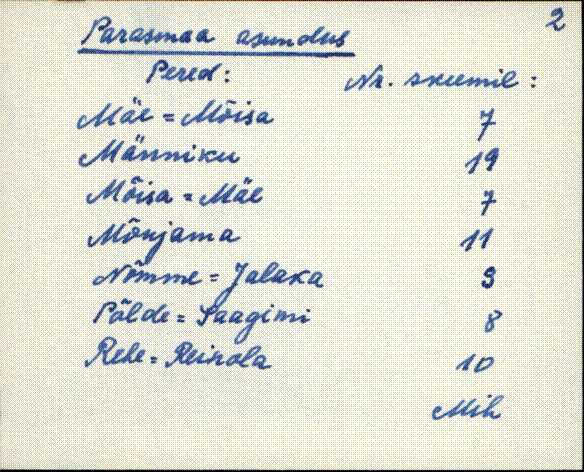 2
Parasmaa asundus
Pered: Nr. skeemil:
Mäe = Mõisa 7
Männiku 19
Mõisa = Mäe 7
Mõnjama 11
Nõmme = Jalaka 9
Põlde = Saagimi 8
Rehe = Reinola 10
Mih